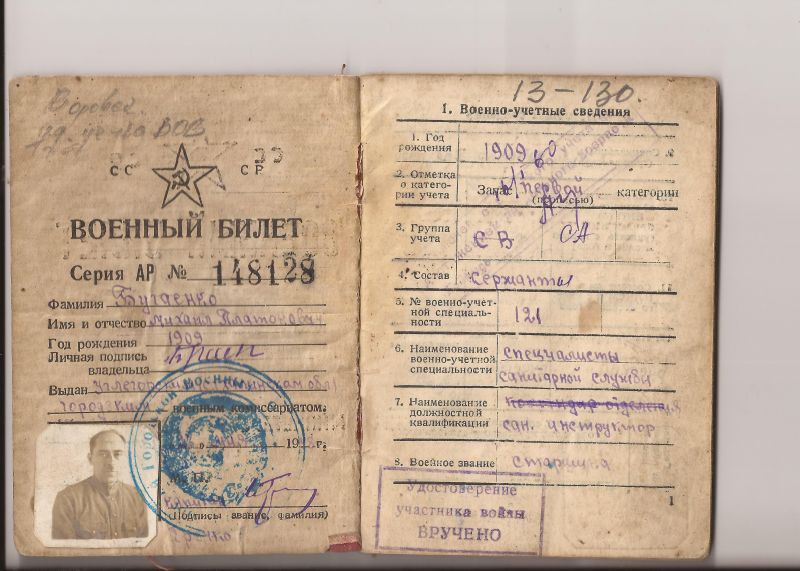 уч-ка ВОВ
СС СР
ВОЕННЫЙ БИЛЕТ
Серия АР № 148128
Фамилия Бугаенко
Имя и отчество Михаил Платонович
Год рождения 1909
Личная подпись
владельца
Выдан Углегорским
городским военным комиссариатом.
19 г.
(Подпись, звание, фамилия)
13-130
1. Военно-учетные сведения
1. Год рождения 1909
2. Отметка о категории учета Запас первой категории
(прописью)
3. Группа учета СВ СА
4. Состав Сержанты
5. № военно-учетной специальности 121
6. Наименование военно-учетной специальности специалисты
санитарной службы
7. Наименование должностной квалификации командир отделения
сан. инструктор
8. Воинское звание старшина
Удостоверение
участника войны
ВРУЧЕНО
1